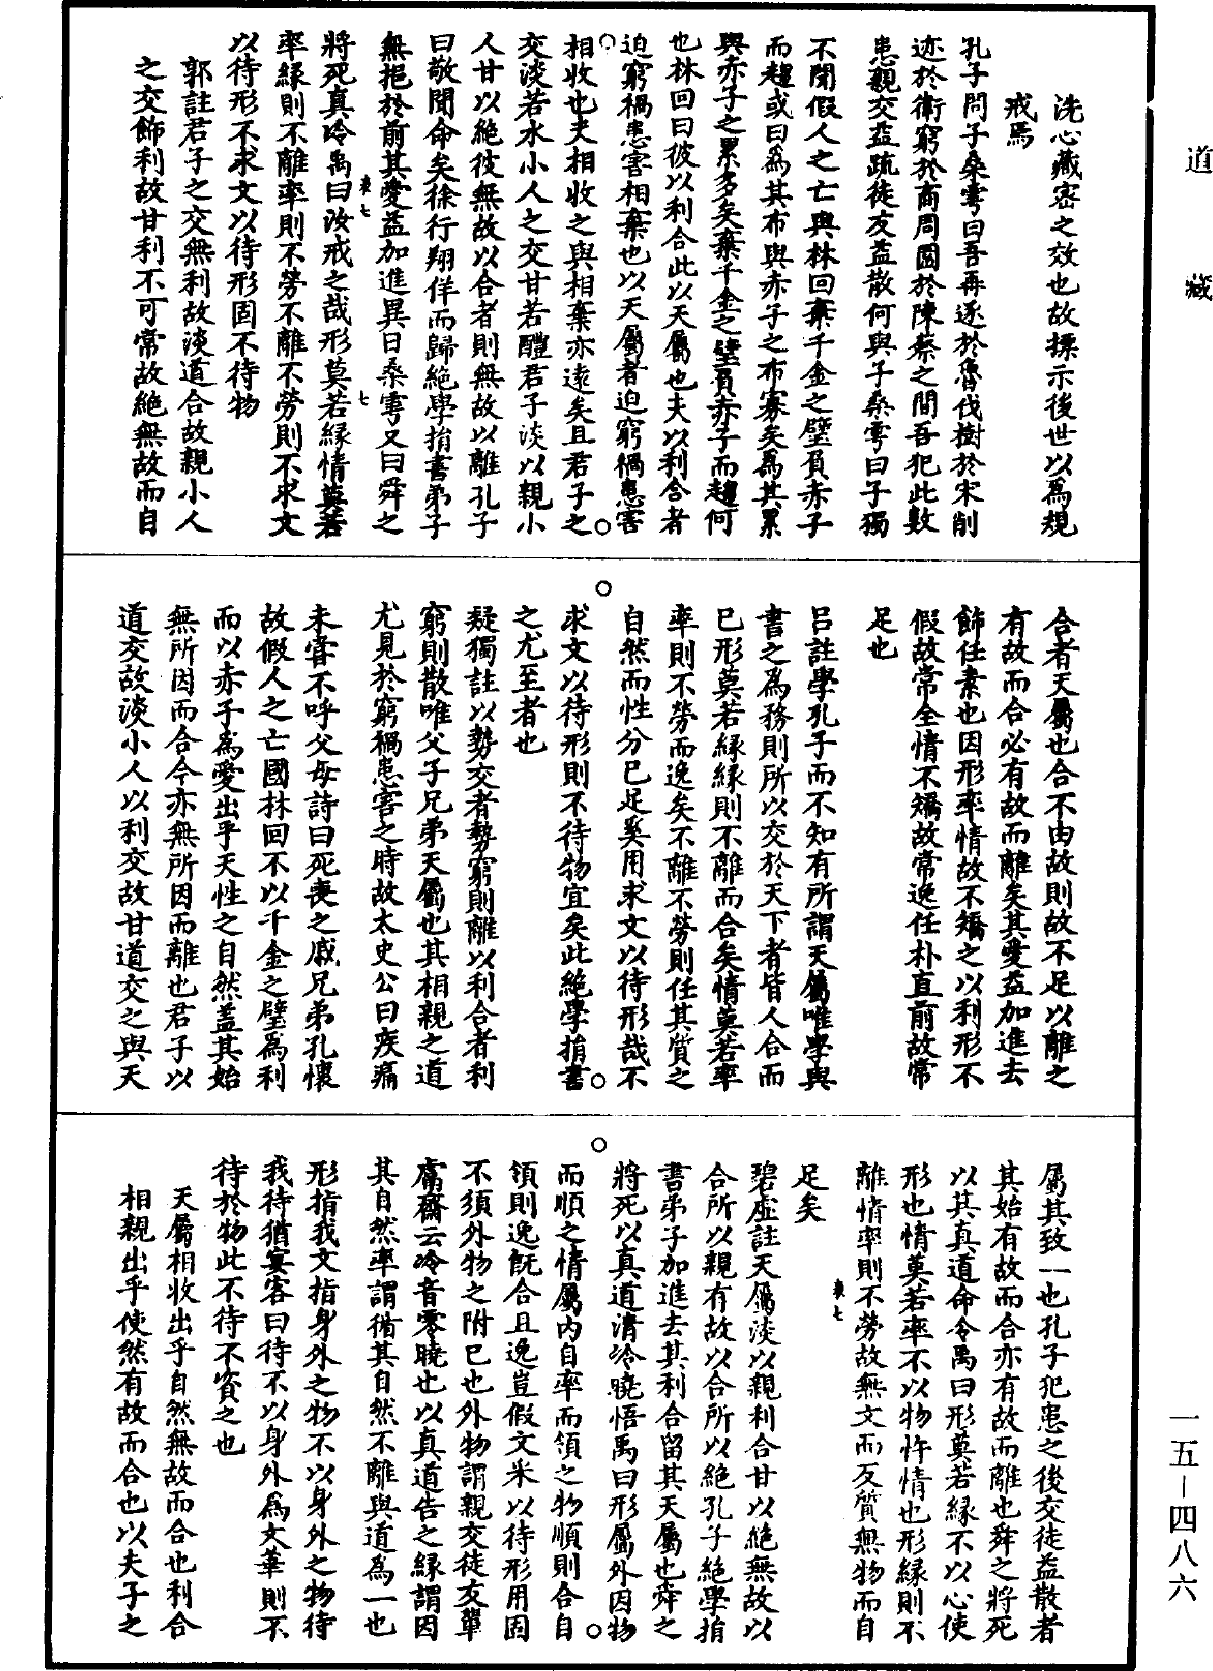 道藏
洗心藏密之效也故揲示後世以為規
戒焉
孔子問子桑雩曰吾再逐於魯伐樹於宋削
迹於衛窮於商周圍於陳蔡之間吾犯此數
患親交益疏徒友益散何與子桑雩曰子獨
不聞假人之亡與林回棄千金之璧負赤子
而趨或曰為其布與赤子之布寡矣為其累
與赤子之累多矣棄千金之璧負赤子而趨何
也林回曰彼以利合此以天屬也夫以利合者
迫窮禍患害相棄也以天屬者迫窮禍患害
相收也夫相收之與相棄亦遠矣且君子之
交淡若水小人之交甘若醴君子淡以親小
人甘以絕彼無故以合者則無故以離孔子
曰敬聞命矣徐行翔佯而歸絕學捐書弟子
無挹於前其愛益加進異日桑雩又曰舜之
將死真泠禹曰汝戒之哉形莫若緣情莫若
率緣則不離率則不勞不離不勞則不求文
以待形不求文以待形固不待物
郭註君子之交無利故淡道合故親小人
之交飾利故甘利不可常故絕無故而自
合者天屬也合不由故則故不足以離之
有故而合必有故而離矣其愛益加進去
飾任素也因形率情故不矯之以利形不
假故常全情不矯故常逸任朴直前故常
足也
呂註學孔子而不知有所謂天屬唯學與
書之為務則所以交於天下者皆人合而
已形莫若緣緣則不離而合矣情莫若率
率則不勞而逸矣不離不勞則任其質之
自然而性分已足奚用求文以待形哉不
求文以待形則不待物宜矣此絕學捐書
之尤至者也
疑獨註以勢交者勢窮則離以利合者利
窮則散唯父子兄弟天屬也其相親之道
尤見於窮禍患害之時故太史公曰疾痛
未嘗不呼父母詩曰死喪之戚兄弟孔懷
故假人之亡國林回不以千金之璧為利
而以赤子為愛出乎天性之自然蓋其始
無所因而合今亦無所因而離也君子以
道交故淡小人以利交故甘道交之與天
屬其致一也孔子犯患之後交徒益散者
其始有故而合亦有故而離也舜之將死
以其真道命令禹曰形莫若緣不以心使
形也情莫若率不以物忤情也形緣則不
離情率則不勞故無文而反質無物而自
足矣
碧虛註天屬淡以親利合甘以絕無故以
合所以親有故以合所以絕孔子絕學捐
書弟子加進去其利合留其天屬也舜之
將死以真道清泠曉悟禹曰形屬外因物
而順之情屬內自率而領之物順則合自
領則逸既合且逸豈假文采以待形用固
不須外物之附己也外物謂親交徒友單
鬳齋云泠音零曉也以真道告之緣謂因
其自然率謂循其自然不離與道為一也
形指我文指身外之物不以身外之物待
我待猶宴客曰待不以身外為文華則不
待於物此不待不資之也
天屬相收出乎自然無故而合也利合
相親出乎使然有故而合也以夫子之
表七
七
表七
一五－四八六